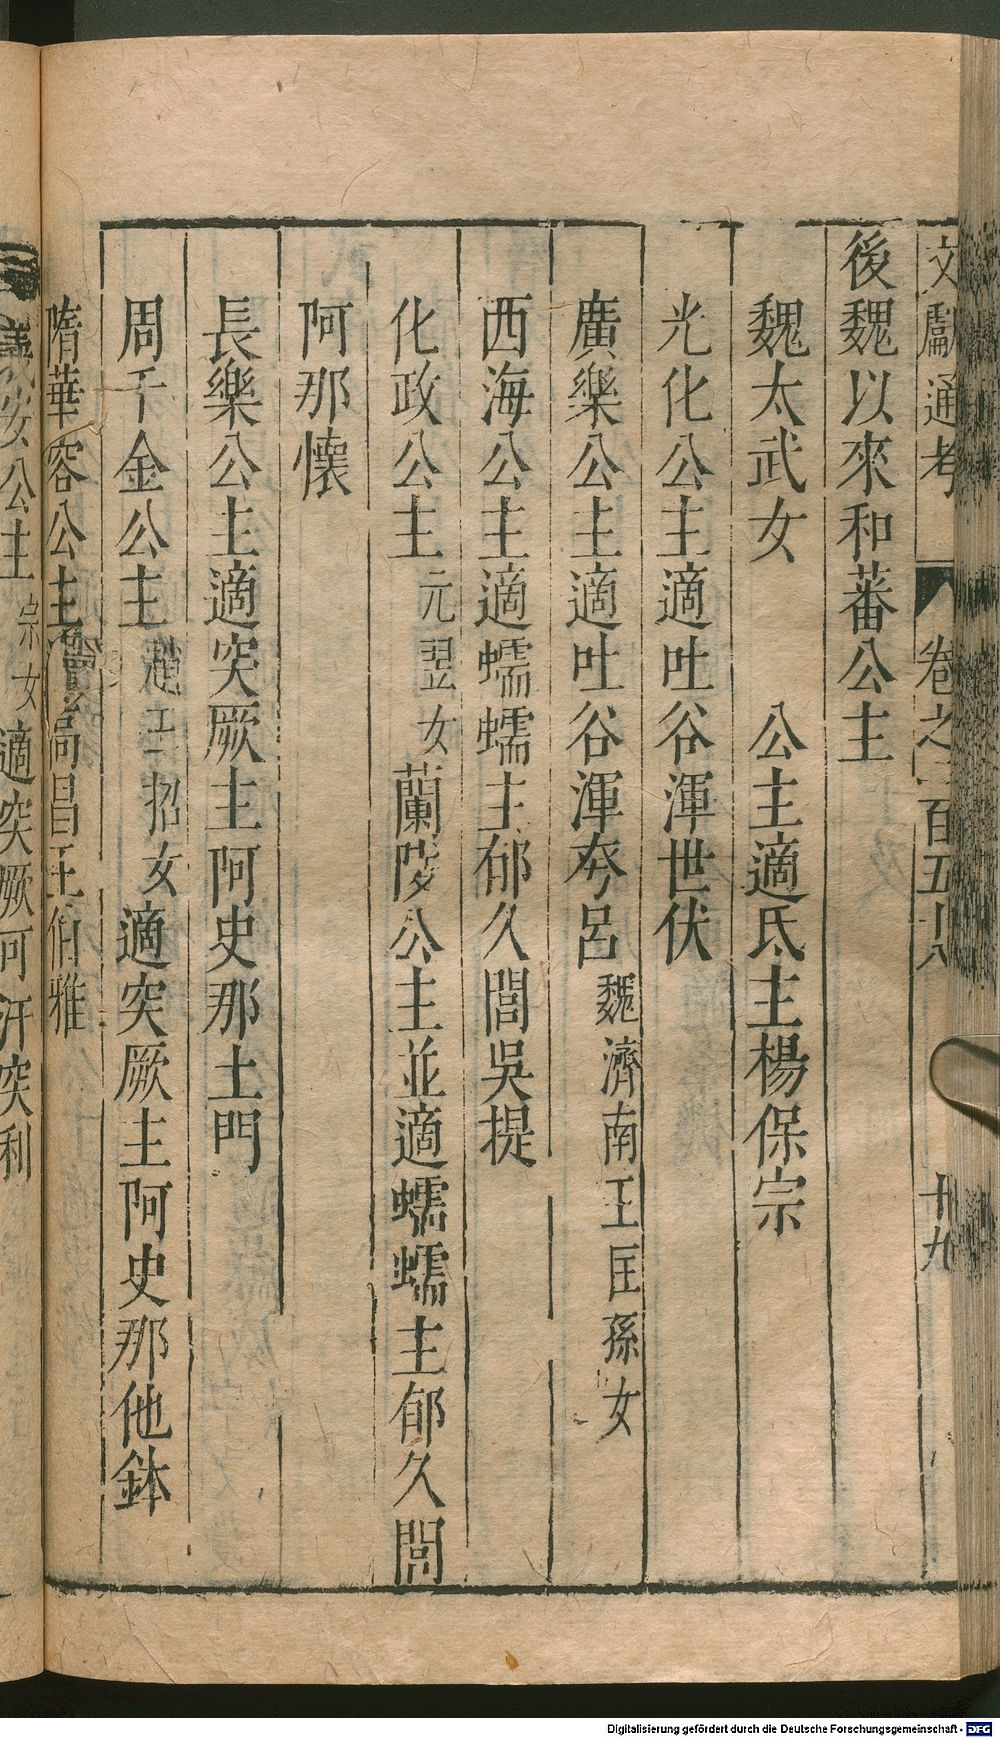 文獻通考 卷之二百五十八 十九
後魏以來和蕃公主
魏太武女 公主適氐主楊保宗
光化公主適吐谷渾世伏
廣樂公主適吐谷渾夸呂魏濟南王匡孫女
西海公主適蠕蠕主郁久閭吳提
化政公主元翌女 蘭陵公主並適蠕蠕主郁久閭
阿那懷
長樂公主適突厥主阿史那土門
周千金公主趙王招女適突厥主阿史那他鉢
隋華容公主適高昌王伯雅
義安公主宗女適突厥可汗突利
Digitalisierung gefördert durch die Deutsche Forschungsgemeinschaft - DFG